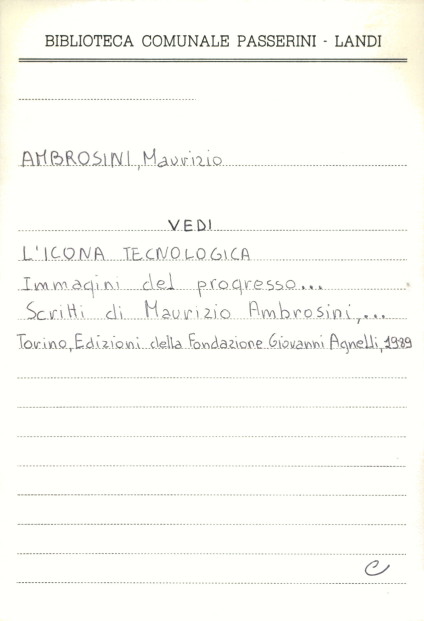 BIBLIOTECA COMUNALE PASSERINI - LANDI
AMBROSINI, Maurizio
VEDI
L'ICONA TECNOLOGICA
Immagini del progresso...
Scritti di Maurizio Ambrosini,...
Torino, Edizioni della Fondazione Giovanni Agnelli, 1989
C